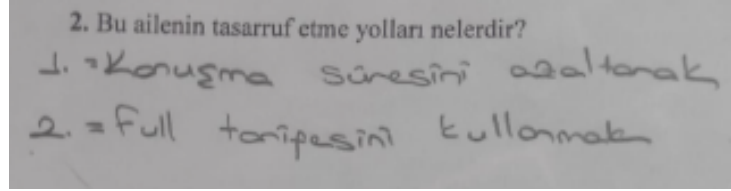 2. Bu ailenin tasarruf etme yolları nelerdir?
1. = Konuşma süresini azaltarak
2. = Full tarifesini kullanmak